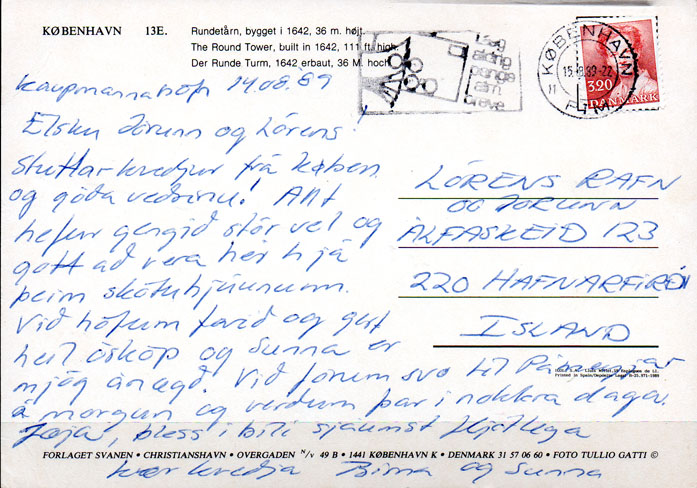 KØBENHAVN 13E.
Rundetårn, bygget i 1642, 36 m. højt.
The Round Tower, built in 1642, 111 ft. high.
Der Runde Turm, 1642 erbaut, 36 M. hoch
Læg
aldrig
penge
i alm.
breve
KØBENHAVN
DANMARK
3.20
Kaupmannahöfn 14.08.'89
Elsku Jórunn og Lórens!
Stuttar kveðjur frá Köben
og góða veðrinu! Allt
hefur gengið stór vel og
gott að vera hér hjá
þeim skötuhjúunum.
Við höfum farið og gert
heil ósköp og Sunna er
mjög ánægð. Við förum svo til
á morgun og verðum þar í nokkra daga.
Jæja, bless í bili sjáumst
kær kveðja Birna og Sunna
LÓRENS RAFN
OG JÓRUNN
ÁLFASKEIÐ 123
220 HAFNARFIRÐI
ISLAND
Printed in Spain
FORLAGET SVANEN • CHRISTIANSHAVN • OVERGADEN N/v 49 B • 1441 KØBENHAVN K • DENMARK 31 57 06 60 • FOTO TULLIO GATTI ©